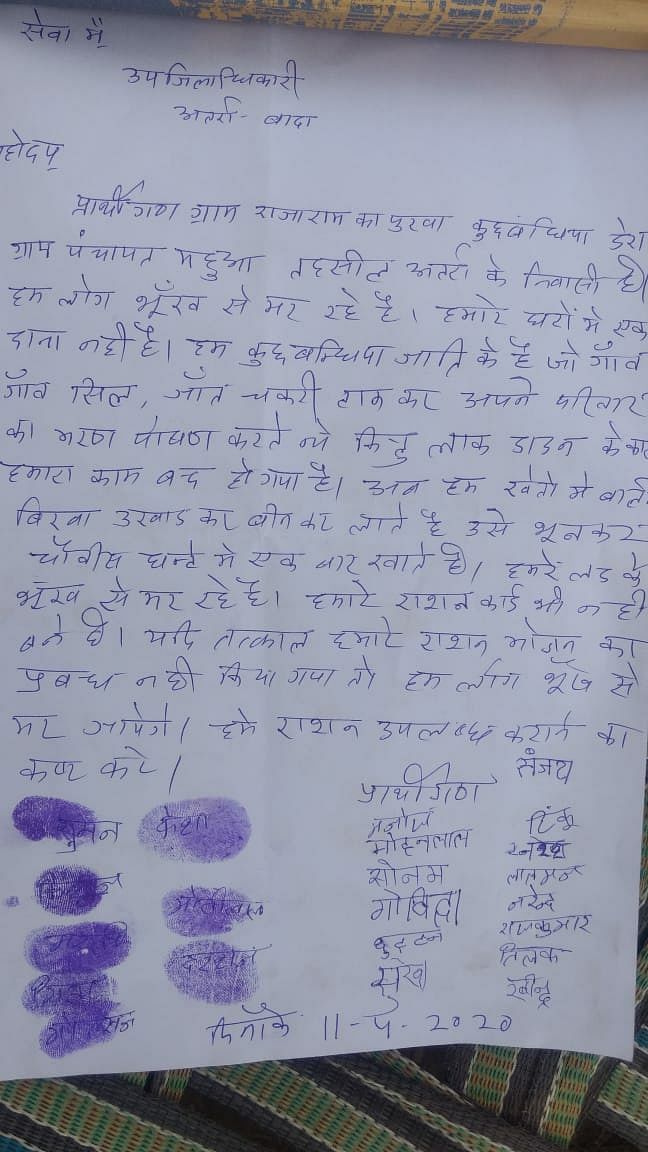 सेवा मैं
उपजिलाधिकारी
अतर्रा- बादा
महोदय
प्रार्थीगण ग्राम राजाराम का पुरवा कुछबंधिया डेरा
ग्राम पंचायत महुआ तहसील अतर्रा के निवासी है।
हम लोग भूँख से मर रहे है। हमारे घरों मे एक
दाना नही है। हम कुछबन्धिया जाति के है जो गाँव
गाँव सिल, जाँत चकरी टाक कर अपने परिवार
का भरण पोषण करते थे किंतु लाक डाउन के का
हमारा काम बन्द हो गया है। अब हम खेतो मे बाली
बिरवा उखाड कर बीन कर लाते है उसे भूनकर
चौबीस घन्टे मे एक बार खाते है। हमारे लडके
भूँख से मर रहे है। हमारे राशन कार्ड भी नही
बने है। यदि तत्काल हमारे राशन भोजन का
प्रबन्ध नही किया गया तो हम लोग भूँख से
मर जायेगे। हमे राशन उपलब्ध कराने का
कष्ट करे।
संजय
प्रार्थीगण
सुमन केशा मनोज टिंकू
मोहनलाल
सोनम लालमन
गोविन्दा नरेन्द्र
राजकुमार
तिलक
सुरेख रवीन्द्र
दिनाँक 11-4-2020